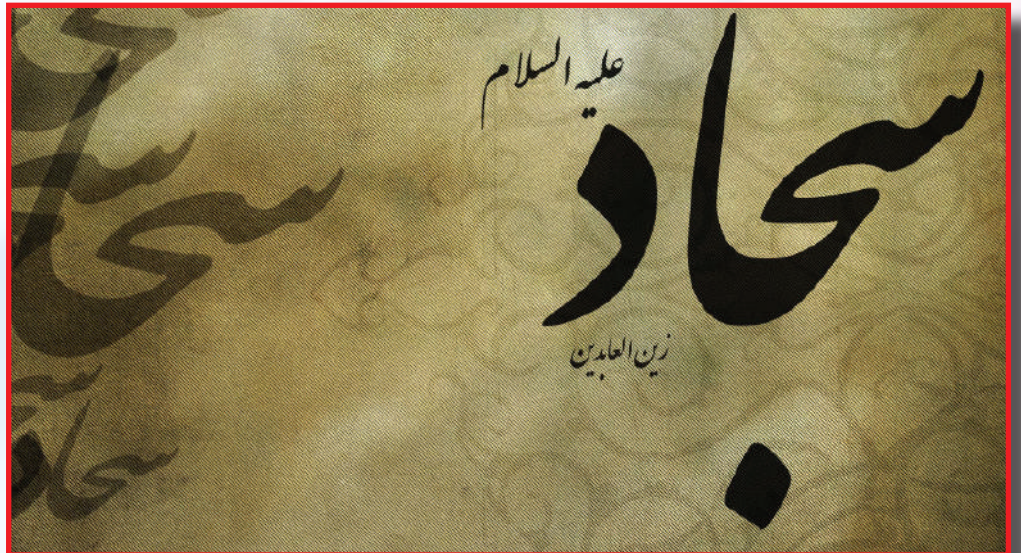 سجاد
علیه السلام
زین العابدین
سجاد
سجاد